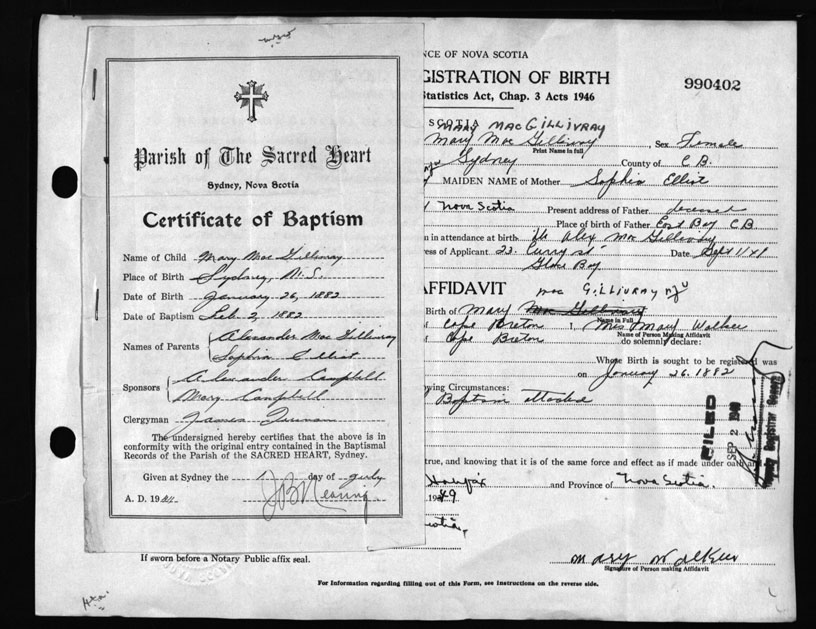 Parish of The Sacred Heart
Sydney, Nova Scotia
Certificate of Baptism
Name of Child Mary Mac Gillivray
Place of Birth Sydney, N.S.
Date of Birth January 26, 1882
Date of Baptism Feb. 2, 1882
Names of Parents Alexander Mac Gillivray
Sophia Elliot
Sponsors Alexander Campbell
Mary Campbell
Clergyman James
The undersigned hereby certifies that the above is in
conformity with the original entry contained in the Baptismal
Records of the Parish of the SACRED HEART, Sydney.
Given at Sydney the 1 day of July
A. D. 19
NCE OF NOVA SCOTIA
GISTRATION OF BIRTH
990402
Statistics Act, Chap. 3 Acts 1946
SCOTIA
MARY MAC GILLIVRAY
Mary Mac Gillivray Sex Female
Print Name in full
Sydney County of C B
MAIDEN NAME of Mother Sophia Elliot
Nova Scotia Present address of Father deceased
Place of birth of Father East Bay C.B.
n in attendance at birth Alex Mac Gillivray
ess of Applicant 23 Curry st Date Sept 1/49
Glace Bay
AFFIDAVIT
Mac GILLIVRAY
Birth of Mary Mac Gillivray
Name in Full
Cape Breton I, Mrs Mary Walker
Name of Person Making Affidavit
Cape Breton do solemnly declare:
Whose Birth is sought to be registered was
on January 26. 1882
wing Circumstances:
Baptism attached
FILED
SEP 2 1949
Deputy Registrar General
true, and knowing that it is of the same force and effect as if made under oath and
Halifax and Province of Nova Scotia.
1949
If sworn before a Notary Public affix seal.
Mary Walker
Signature of Person making Affidavit
For Information regarding filling out of this Form, see Instructions on the reverse side.